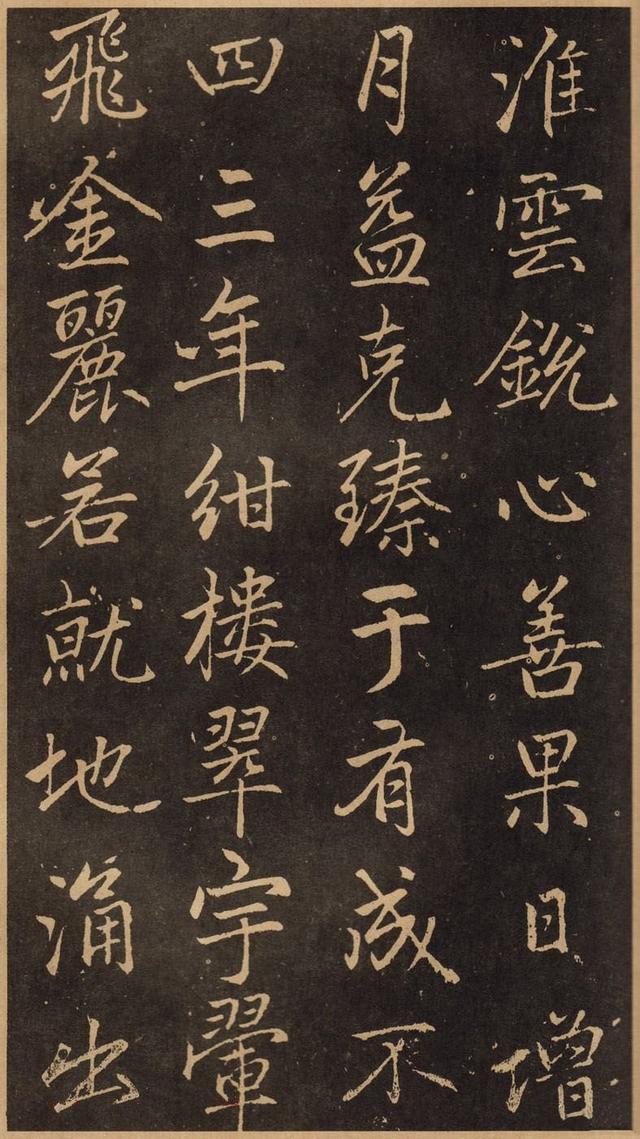 淮雲銳心善果日增
月益克臻于有成不
四三年紺樓翠宇翬
飛金麗若就地涌出